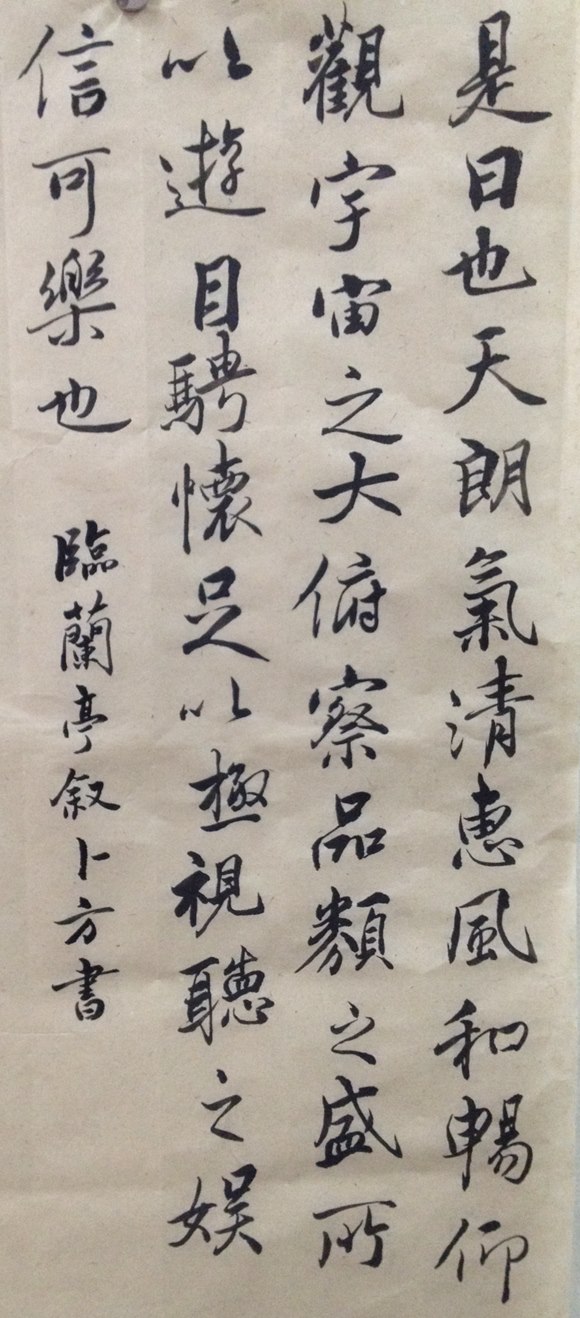 是日也天朗氣清惠風和暢仰
觀宇宙之大俯察品類之盛所
以遊目騁懷足以極視聽之娛
信可樂也
臨蘭亭叙卜方書